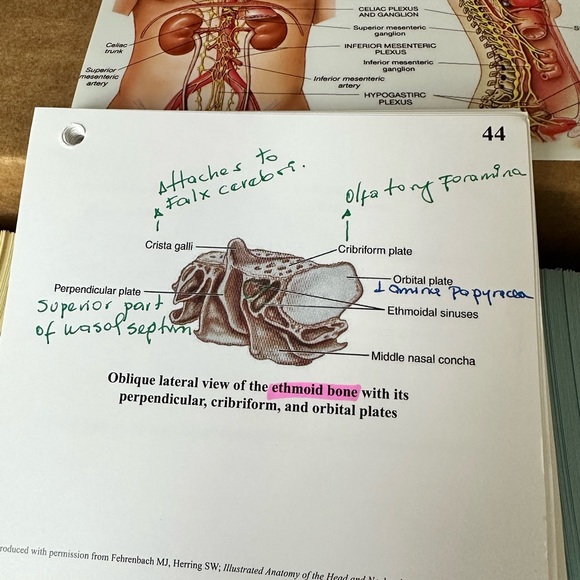 CELIAC PLEXUS
AND GANGLION
Superior mesenteric
ganglion
Celiac
trunk
INFERIOR MESENTERIC
PLEXUS
Superior
mesenteric
artery
Inferior mesenteric
ganglion
Inferior mesenteric
artery
HYPOGASTIRC
PLEXUS
44
Attaches to
Falx cerebri.
Olfatory Foramina
Crista galli
Cribriform plate
Orbital plate
Lamina Papyracea
Perpendicular plate
Superior part
of nasol septum
Ethmoidal sinuses
Middle nasal concha
Oblique lateral view of the ethmoid bone with its
perpendicular, cribriform, and orbital plates
roduced with permission from Fehrenbach MJ, Herring SW; Illustrated Anatomy of the Head and